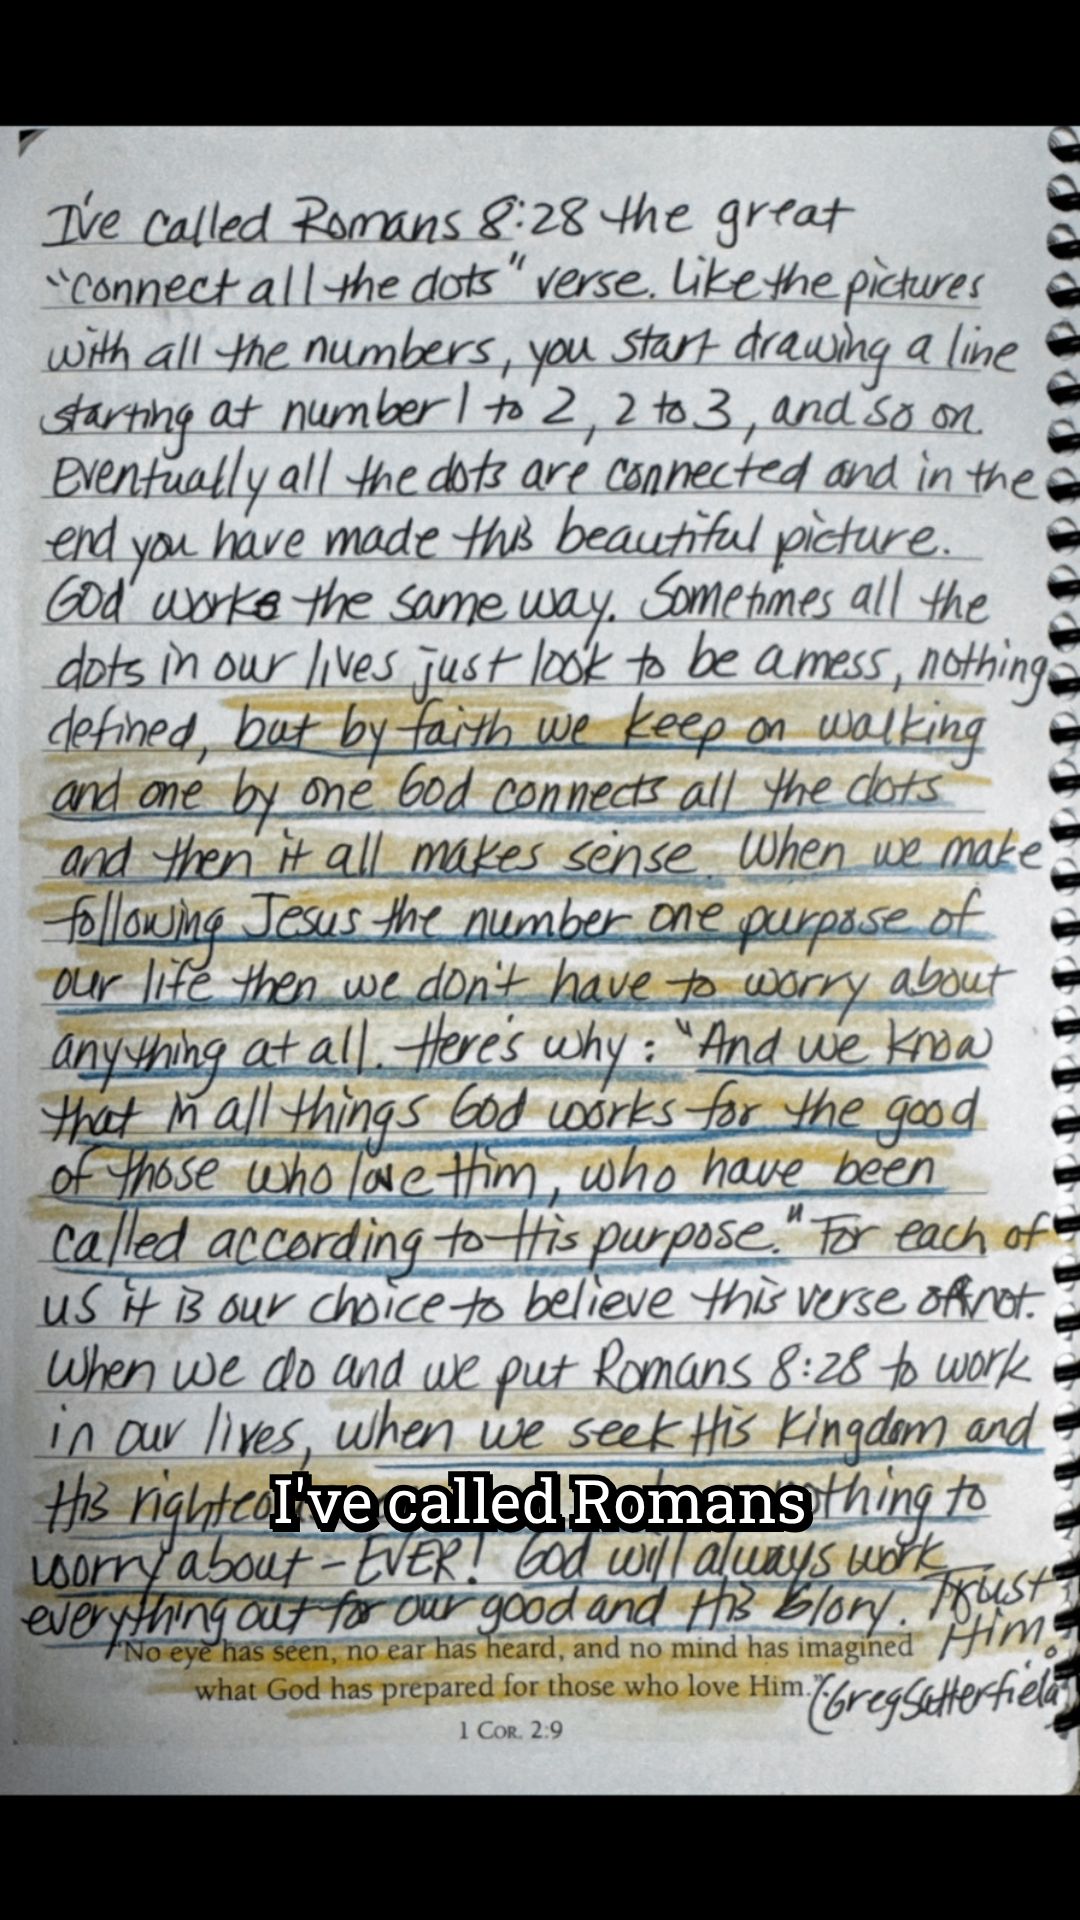 I've called Romans 8:28 the great
"connect all the dots" verse. Like the pictures
with all the numbers, you start drawing a line
starting at number 1 to 2, 2 to 3, and so on.
Eventually all the dots are connected and in the
end you have made this beautiful picture.
God works the same way. Sometimes all the
dots in our lives just look to be a mess, nothing
defined, but by faith we keep on walking
and one by one God connects all the dots
and then it all makes sense. When we make
following Jesus the number one purpose of
our life then we don't have to worry about
anything at all. Here's why: "And we know
that in all things God works for the good
of those who love Him, who have been
called according to His purpose." For each of
us it is our choice to believe this verse or not.
When we do and we put Romans 8:28 to work
in our lives, when we seek His Kingdom and
His nothing to
I've called Romans
worry about - EVER! God will always work
everything out for our good and His Glory. Trust
Him.
"No eye has seen, no ear has heard, and no mind has imagined
what God has prepared for those who love Him."
(Greg Satterfield)
1 COR. 2:9